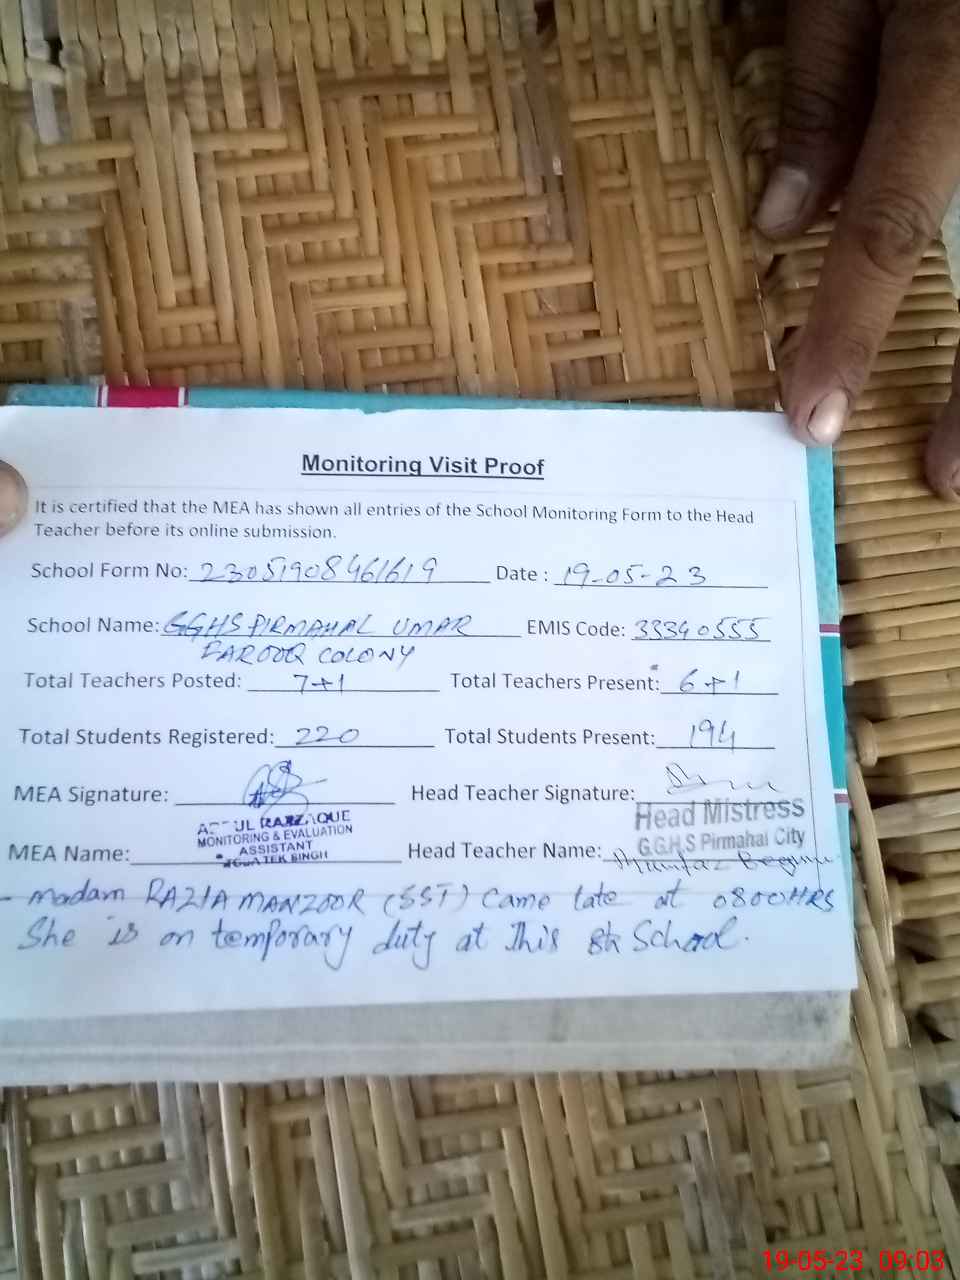 Monitoring Visit Proof
It is certified that the MEA has shown all entries of the School Monitoring Form to the Head
Teacher before its online submission.
School Form No: 23051908461619 Date : 19-05-23
School Name: GGHS PIRMAHAL UMAR EMIS Code: 33340555
FAROOQ COLONY
Total Teachers Posted: 7+1 Total Teachers Present: 6+1
Total Students Registered: 220 Total Students Present: 194
MEA Signature: Head Teacher Signature:
Head Mistress
G.G.H.S Pirmahal City
ABDUL RAZZAQUE
MONITORING & EVALUATION
ASSISTANT
TEK SINGH
MEA Name: Head Teacher Name: Mumtaz Begum
- Madam RAZIA MANZOOR (SST) Came late at 0800HRS
She is on temporary duty at This School.
19-05-23 09:03